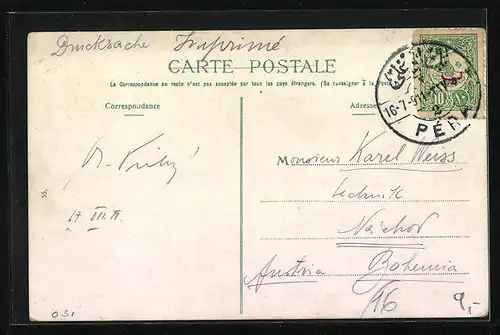 Drucksache Imprimé
CARTE POSTALE
La Correspondance au recto n'est pas acceptée par tous les pays étrangers. (Se renseigner à la Poste)
Correspondance
Adresse
10
PÉRA
Monsieur Karel Weiss
technik
Náchod
Austria Bohemia
55.
17 III
051
/16
9,-